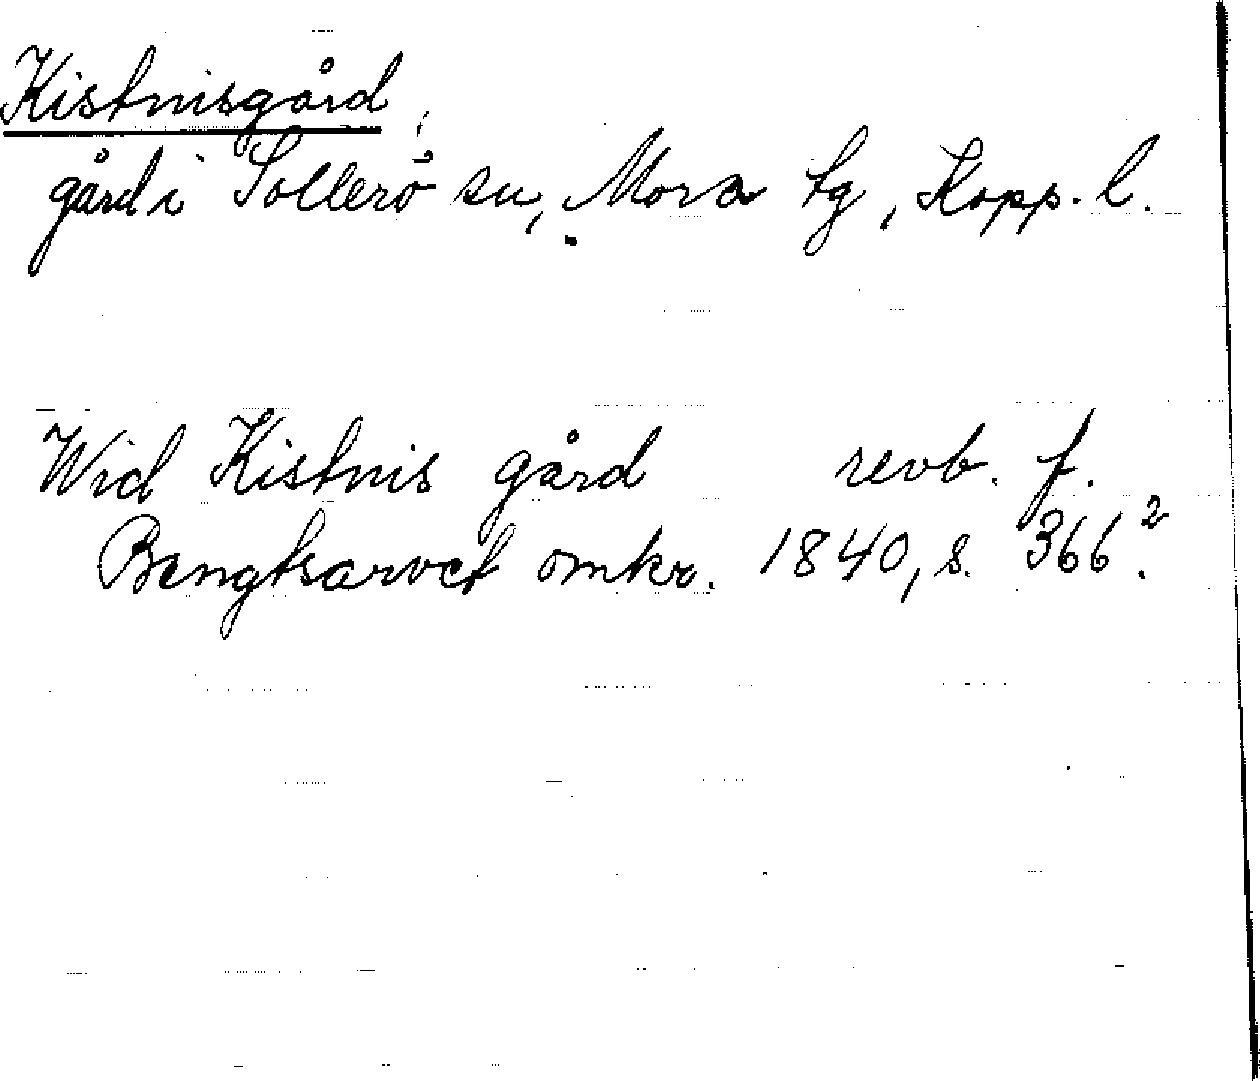 Kistnisgård
gård i Sollerö sn, Mora tg, Kopp. l.
Wid Kistnis gård revb. f.
Bengtsarvet omkr. 1840, s. 366².